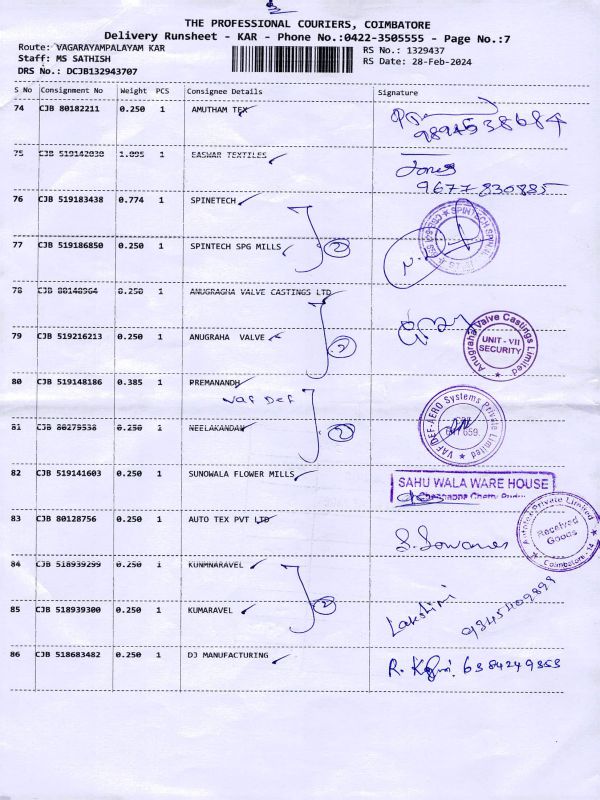 THE PROFESSIONAL COURIERS, COIMBATORE
Delivery Runsheet - KAR - Phone No.:0422-3505555 - Page No.:7
Route: VAGARAYAMPALAYAM KAR
RS No.: 1329437
Staff: MS SATHISH
RS Date: 28-Feb-2024
DRS No.: DCJB132943707
S No Consignment No Weight PCS Consignee Details Signature
74 CJB 80182211 0.250 1 AMUTHAM TEX
9894538684
75 CJB 519142030 1.095 1 EASWAR TEXTILES
Jones
9677830885
76 CJB 519183438 0.774 1 SPINETECH
77 CJB 519186850 0.250 1 SPINTECH SPG MILLS
2
78 CJB 80148964 0.250 1 ANUGRAGHA VALVE CASTINGS LTD
79 CJB 519216213 0.250 1 ANUGRAHA VALVE
2
Anugraha Valve Castings Limited
UNIT - VII
SECURITY
80 CJB 519148186 0.385 1 PREMANANDH
Vaf Def
VAF DEF-AERO Systems Private Limited
81 CJB 80279538 0.250 1 NEELAKANDAN
2
82 CJB 519141603 0.250 1 SUNOWALA FLOWER MILLS
SAHU WALA WARE HOUSE
83 CJB 80128756 0.250 1 AUTO TEX PVT LTD
Autotex Private Limited
Received
Goods
Coimbatore - 14
84 CJB 518939299 0.250 1 KUNMNARAVEL
85 CJB 518939300 0.250 1 KUMARAVEL
2
Lakshmi
9345409899
86 CJB 518683482 0.250 1 DJ MANUFACTURING
6384249353